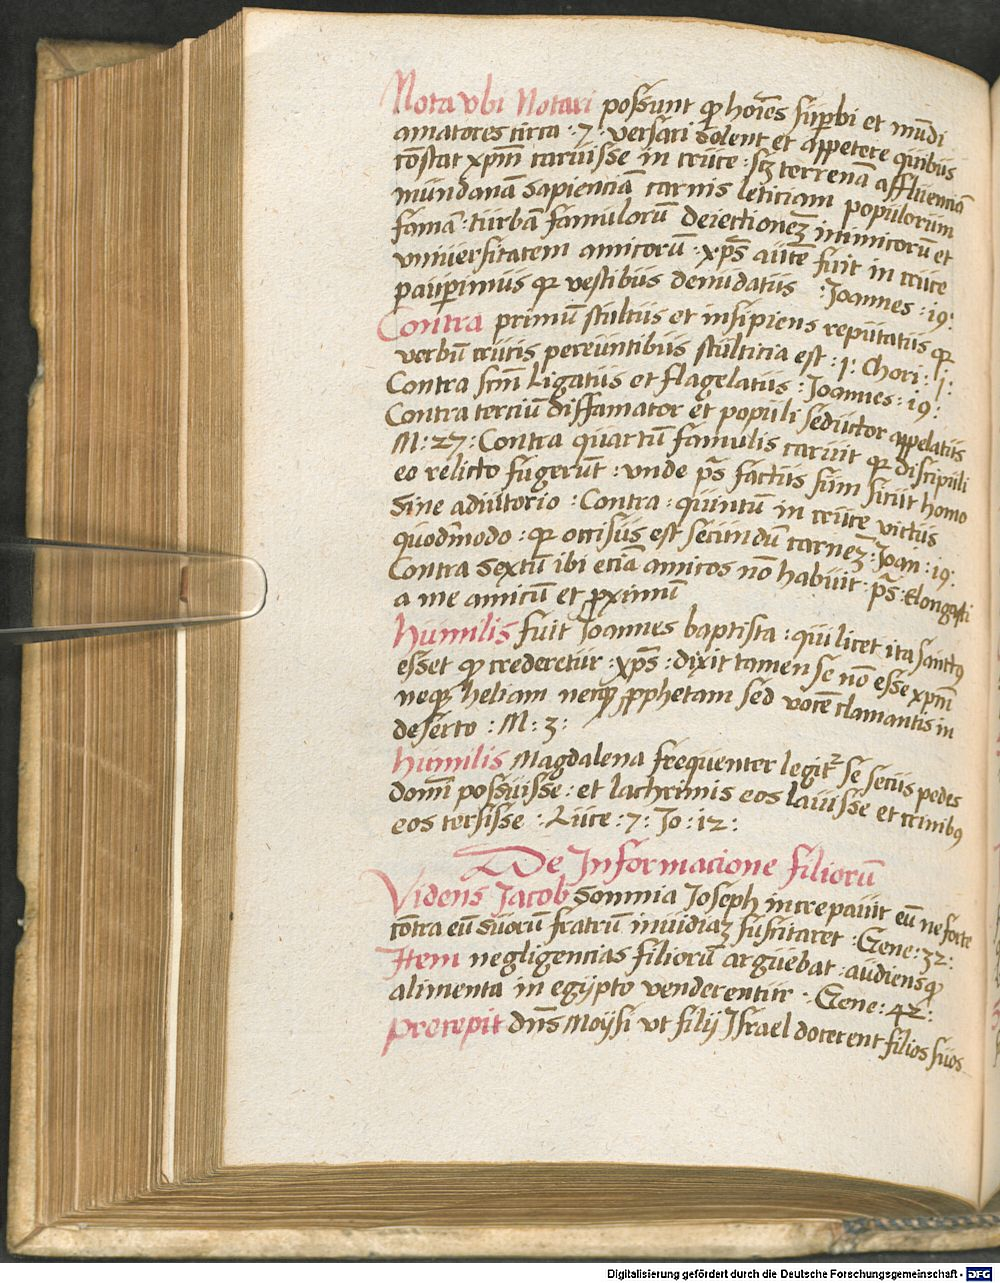 Nota vbi Notari possunt ꝙ hoīes suꝑbi et mūdi
amatores circa ·7· versari solent et appetere quibus
cōstat xp̄m caruisse in cruce · scꝫ terrenā affluenciā
mundanā sapienciā carnis leticiam populorum
famā · turbā famulorū deiectionēꝫ inimicorū et
vniuersitatem amicorū · xp̄s autē fuit in cruce
pauꝑrimus qr vestibus denudatus : Joannes : 19:
Contra primū stultus et insipiens reputatus qr
verbū crucis pereuntibus stulticia est : 1 : Chori : 1:
Contra scm̄ Ligatus et flagelatus : Joannes : 19:
Contra terciū diffamator et populi seductor appelatus
M: 27 : Contra quartū famulis caruit qr discipuli
eo relicto fugerūt : vnde ps̄ factus sum sicut homo
sine adiutorio : Contra : quintū in cruce victus
quodm̄modo : qr occisus est secundū carneꝫ : Joan : 19:
Contra sextū ibi eciā amicos nō habuit · ps̄ · Elongasti
a me amicū et ꝓximū
Humilis fuit Joannes baptista : qui licet ita sanctus
esset ꝙ crederetur · xp̄s : dixit tamen se nō esse xp̄m
neqꝫ heliam necqꝫ ꝓphetam sed vocē clamantis in
deserto : M: 3:
Humilis Magdalena frequenter legit̄ se secus pedes
domī possuisse : et lachrimis eos lauisse et crinibꝰ
eos tersisse : Luce : 7 : Jo : 12 :
De Informacione filiorū
Videns Jacob somnia Joseph increpauit eū ne forte
cōtra eū suorū fratrū inuidiāꝫ suscitaret · Gene : 32:
Item negligencias filiorū arguebat · audiens ꝙ
alimenta in egypto venderentur · Gene : 42 :
Precepit dn̄s Moysi vt filij Israel docerent filios suos
Digitalisierung gefördert durch die Deutsche Forschungsgemeinschaft - DFG